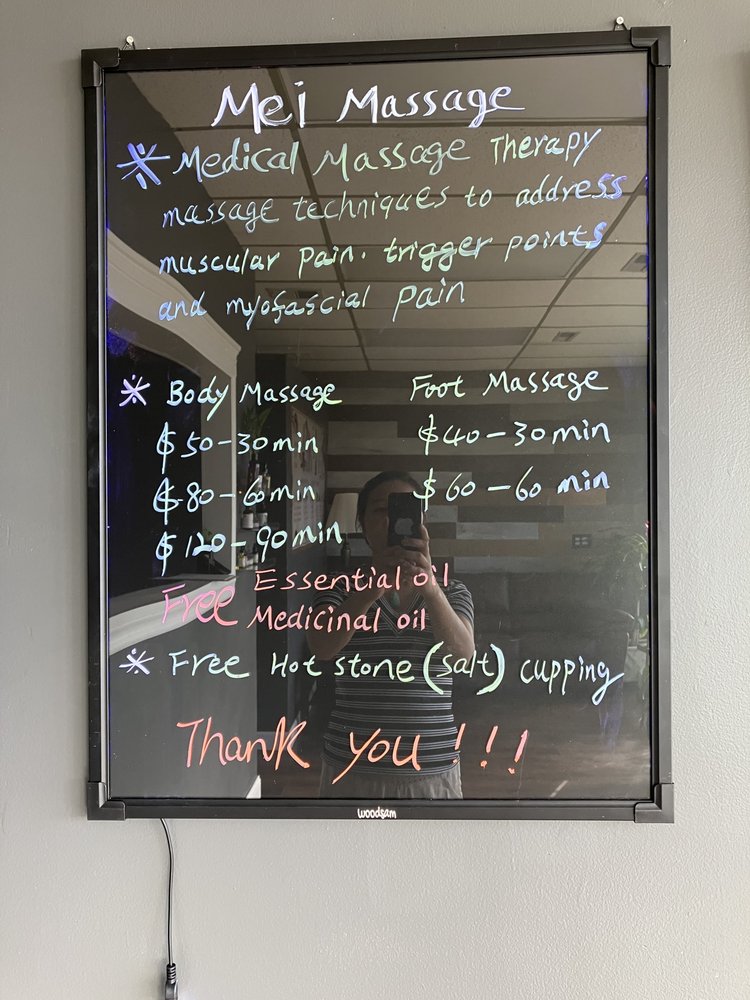 Mei Massage
※ Medical Massage Therapy
massage techniques to address
muscular pain. trigger points
and myofascial pain
※ Body Massage
$50-30min
$80-60min
$120-90min
Foot Massage
$40-30min
$60-60 min
Free Essential oil
Medicinal oil
※ Free Hot stone (salt) cupping
Thank you!!!
woodsam